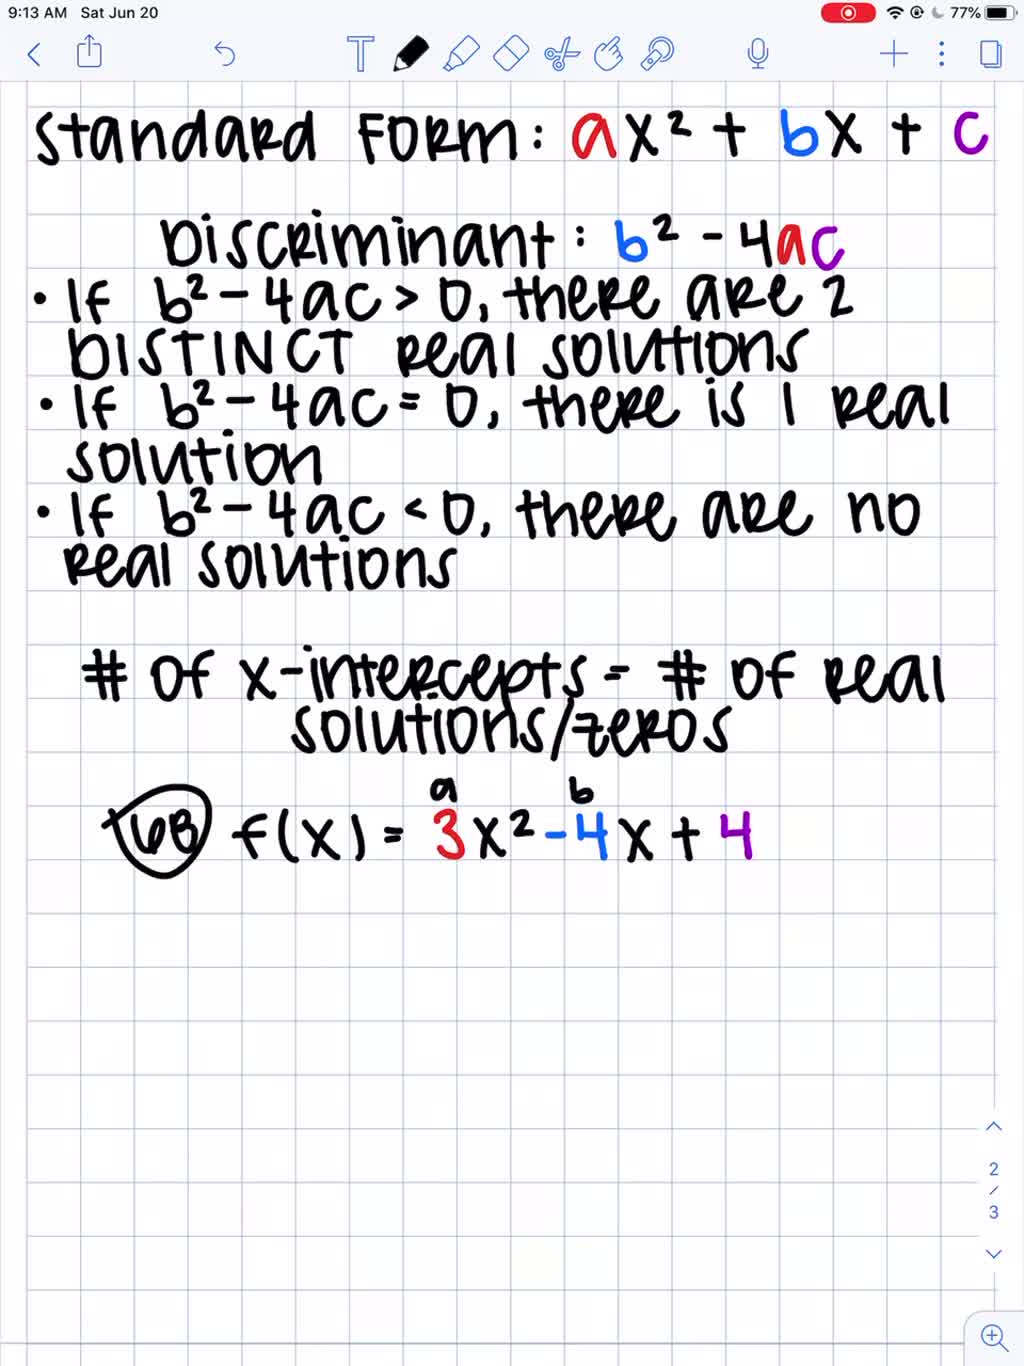 9:13 AM Sat Jun 20 77%
T
Standard Form: ax² + bx + c
Discriminant: b² - 4ac
• If b² - 4ac > 0, there are 2
DISTINCT real solutions
• If b² - 4ac = 0, there is 1 real
solution
• If b² - 4ac < 0, there are no
real solutions
# of x-intercepts = # of real
solutions/zeros
a b
68 f(x) = 3x² - 4x + 4
2
/
3